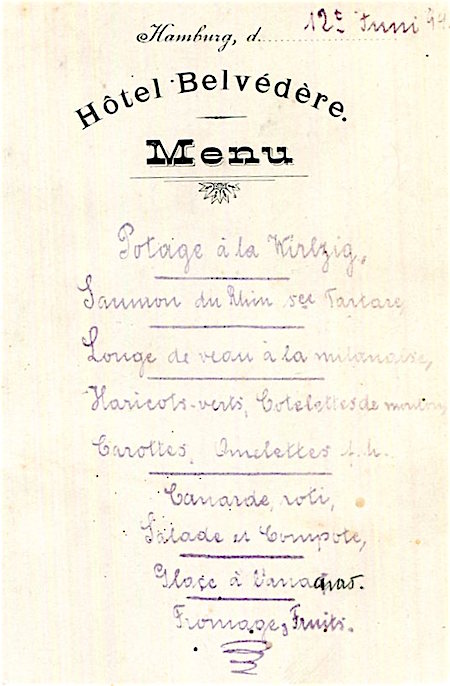 Hamburg, d. 12t Juni
Hôtel Belvédère.
Menu
Potage à la
Saumon du Rhin sce Tartare,
Longe de veau à la milanaise,
Haricots-verts, Cotelettes de mouton,
Carottes, Omelettes f. h.
Canarde, roti,
Salade et Compote,
Glaçe à l'ananas.
Fromage, Fruits.